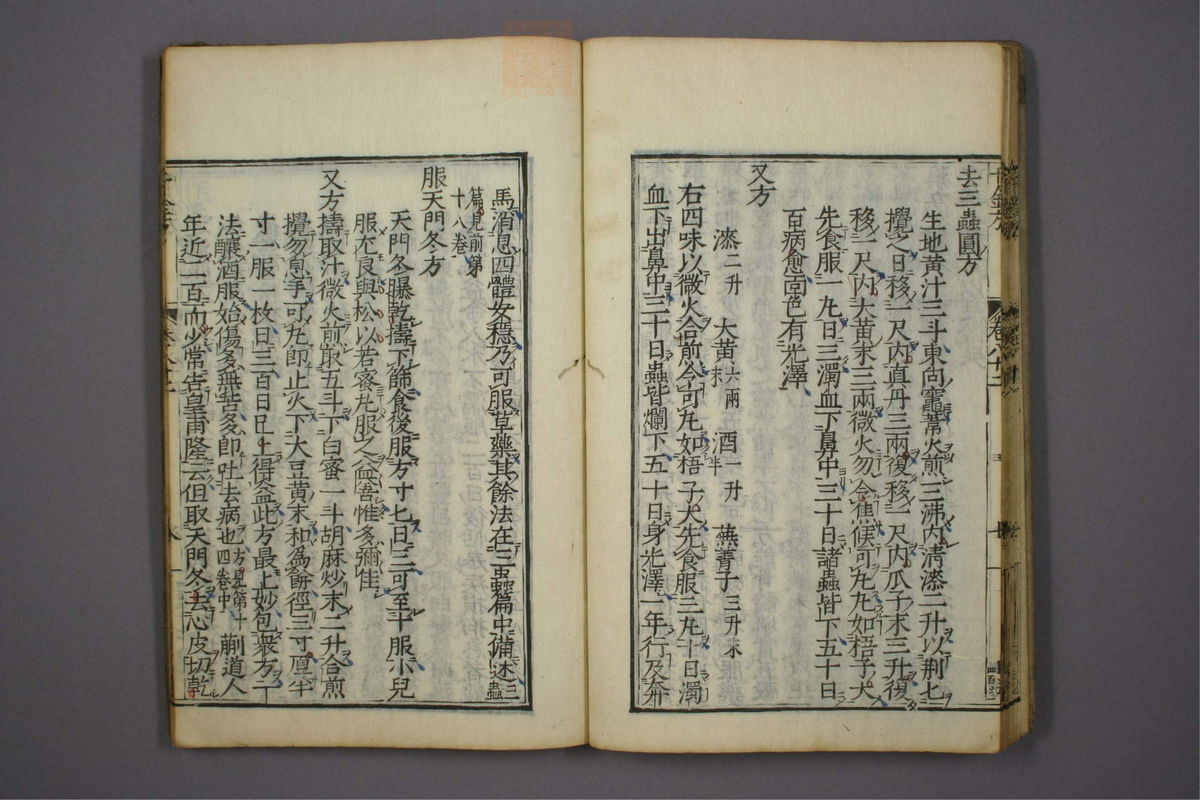 去三蟲圓方
生地黄汁三斗東向竈葦火煎三沸内清漆二升以荆匕
攪之日移一尺内真丹三兩復移一尺内瓜子末三升復
移一尺内大黄末三兩微火勿令焦候可丸丸如梧子大
先食服一丸日三濁血下鼻中三十日諸蟲皆下五十日
百病愈面色有光澤
又方
漆二升 大黄六兩末 酒一升半 蕪菁子三升末
右四味以微火合煎令可丸如梧子大先食服三丸十日濁
血下出鼻中三十日蟲皆爛下五十日身光澤一年行及奔
馬消息四體安穩乃可服草藥其餘法在三蟲篇中備述三蟲
篇見前第
十八卷
服天門冬方
天門冬曝乾擣下篩食後服方寸匕日三可至十服小兒
服尤良與松以若蜜丸服之益善惟多彌佳
又方擣取汁微火煎取五斗下白蜜一斗胡麻炒末二升合煎
攪勿息手可丸即止火下大豆黄末和為餅徑三寸厚半
寸一服一枚日三百日已上得益此方最上妙包衆方一
法釀酒服始傷多無苦多即吐去病也方見第十四卷中蒯道人
年近二百而少常告皇甫隆云但取天門冬去心皮切乾
千金方
卷八十二